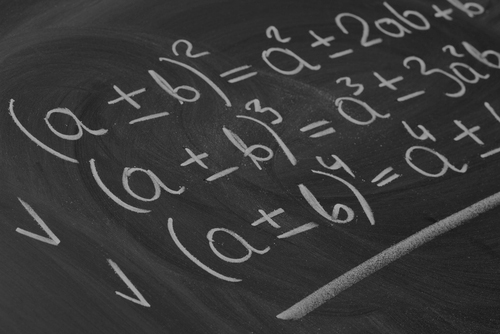 (a ± b)² = a² ± 2ab + b
(a ± b)³ = a³ ± 3a²b
(a ± b)⁴ = a⁴ ±